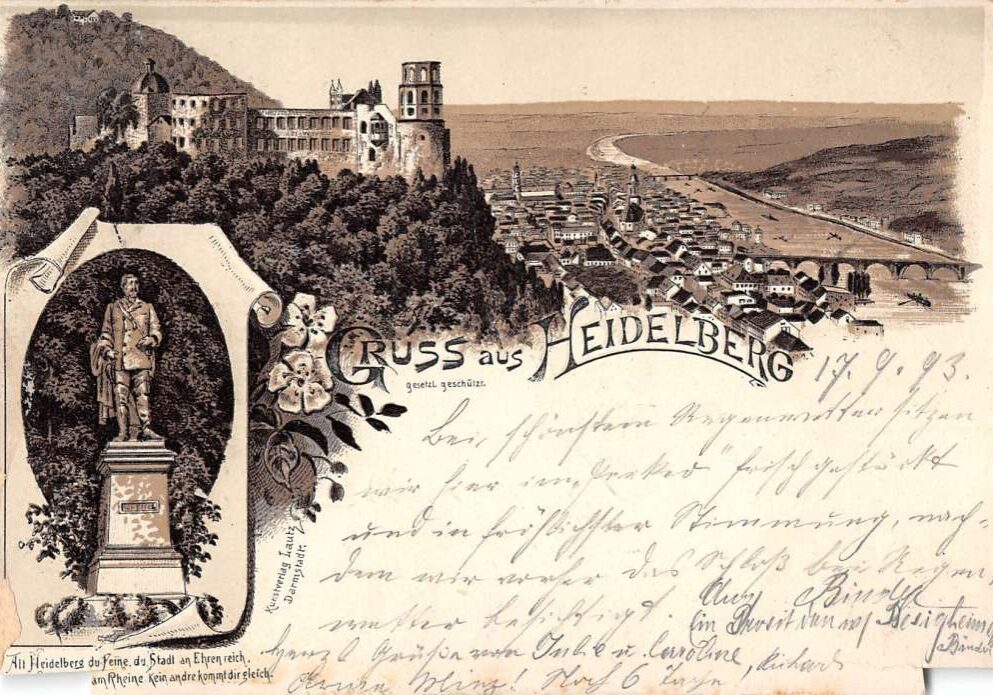 GRUSS aus HEIDELBERG
gesetzl. geschützt.
17. 9. 93.
Bei schönstem Regenwetter sitzen
wir hier im „Perkeo" frisch gestärkt
und in fröhlichster Stimmung, nach-
dem wir vorher das Schloß bei Regen-
wetter besichtigt.
Ein Prosit den Besigheim
Herzl. Grüße von u. Caroline, Richard
Noch 6 Tage,
Kunstverlag Lautz
Darmstadt.
Alt Heidelberg du Feine, du Stadt an Ehren reich,
am Rheine kein andre kommt dir gleich.